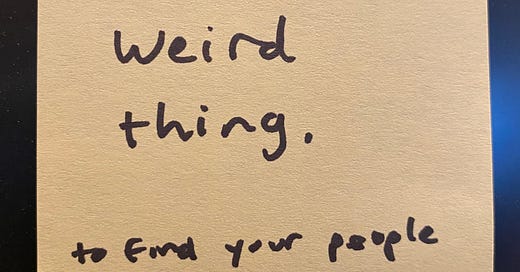 Weird
thing.
to find your people